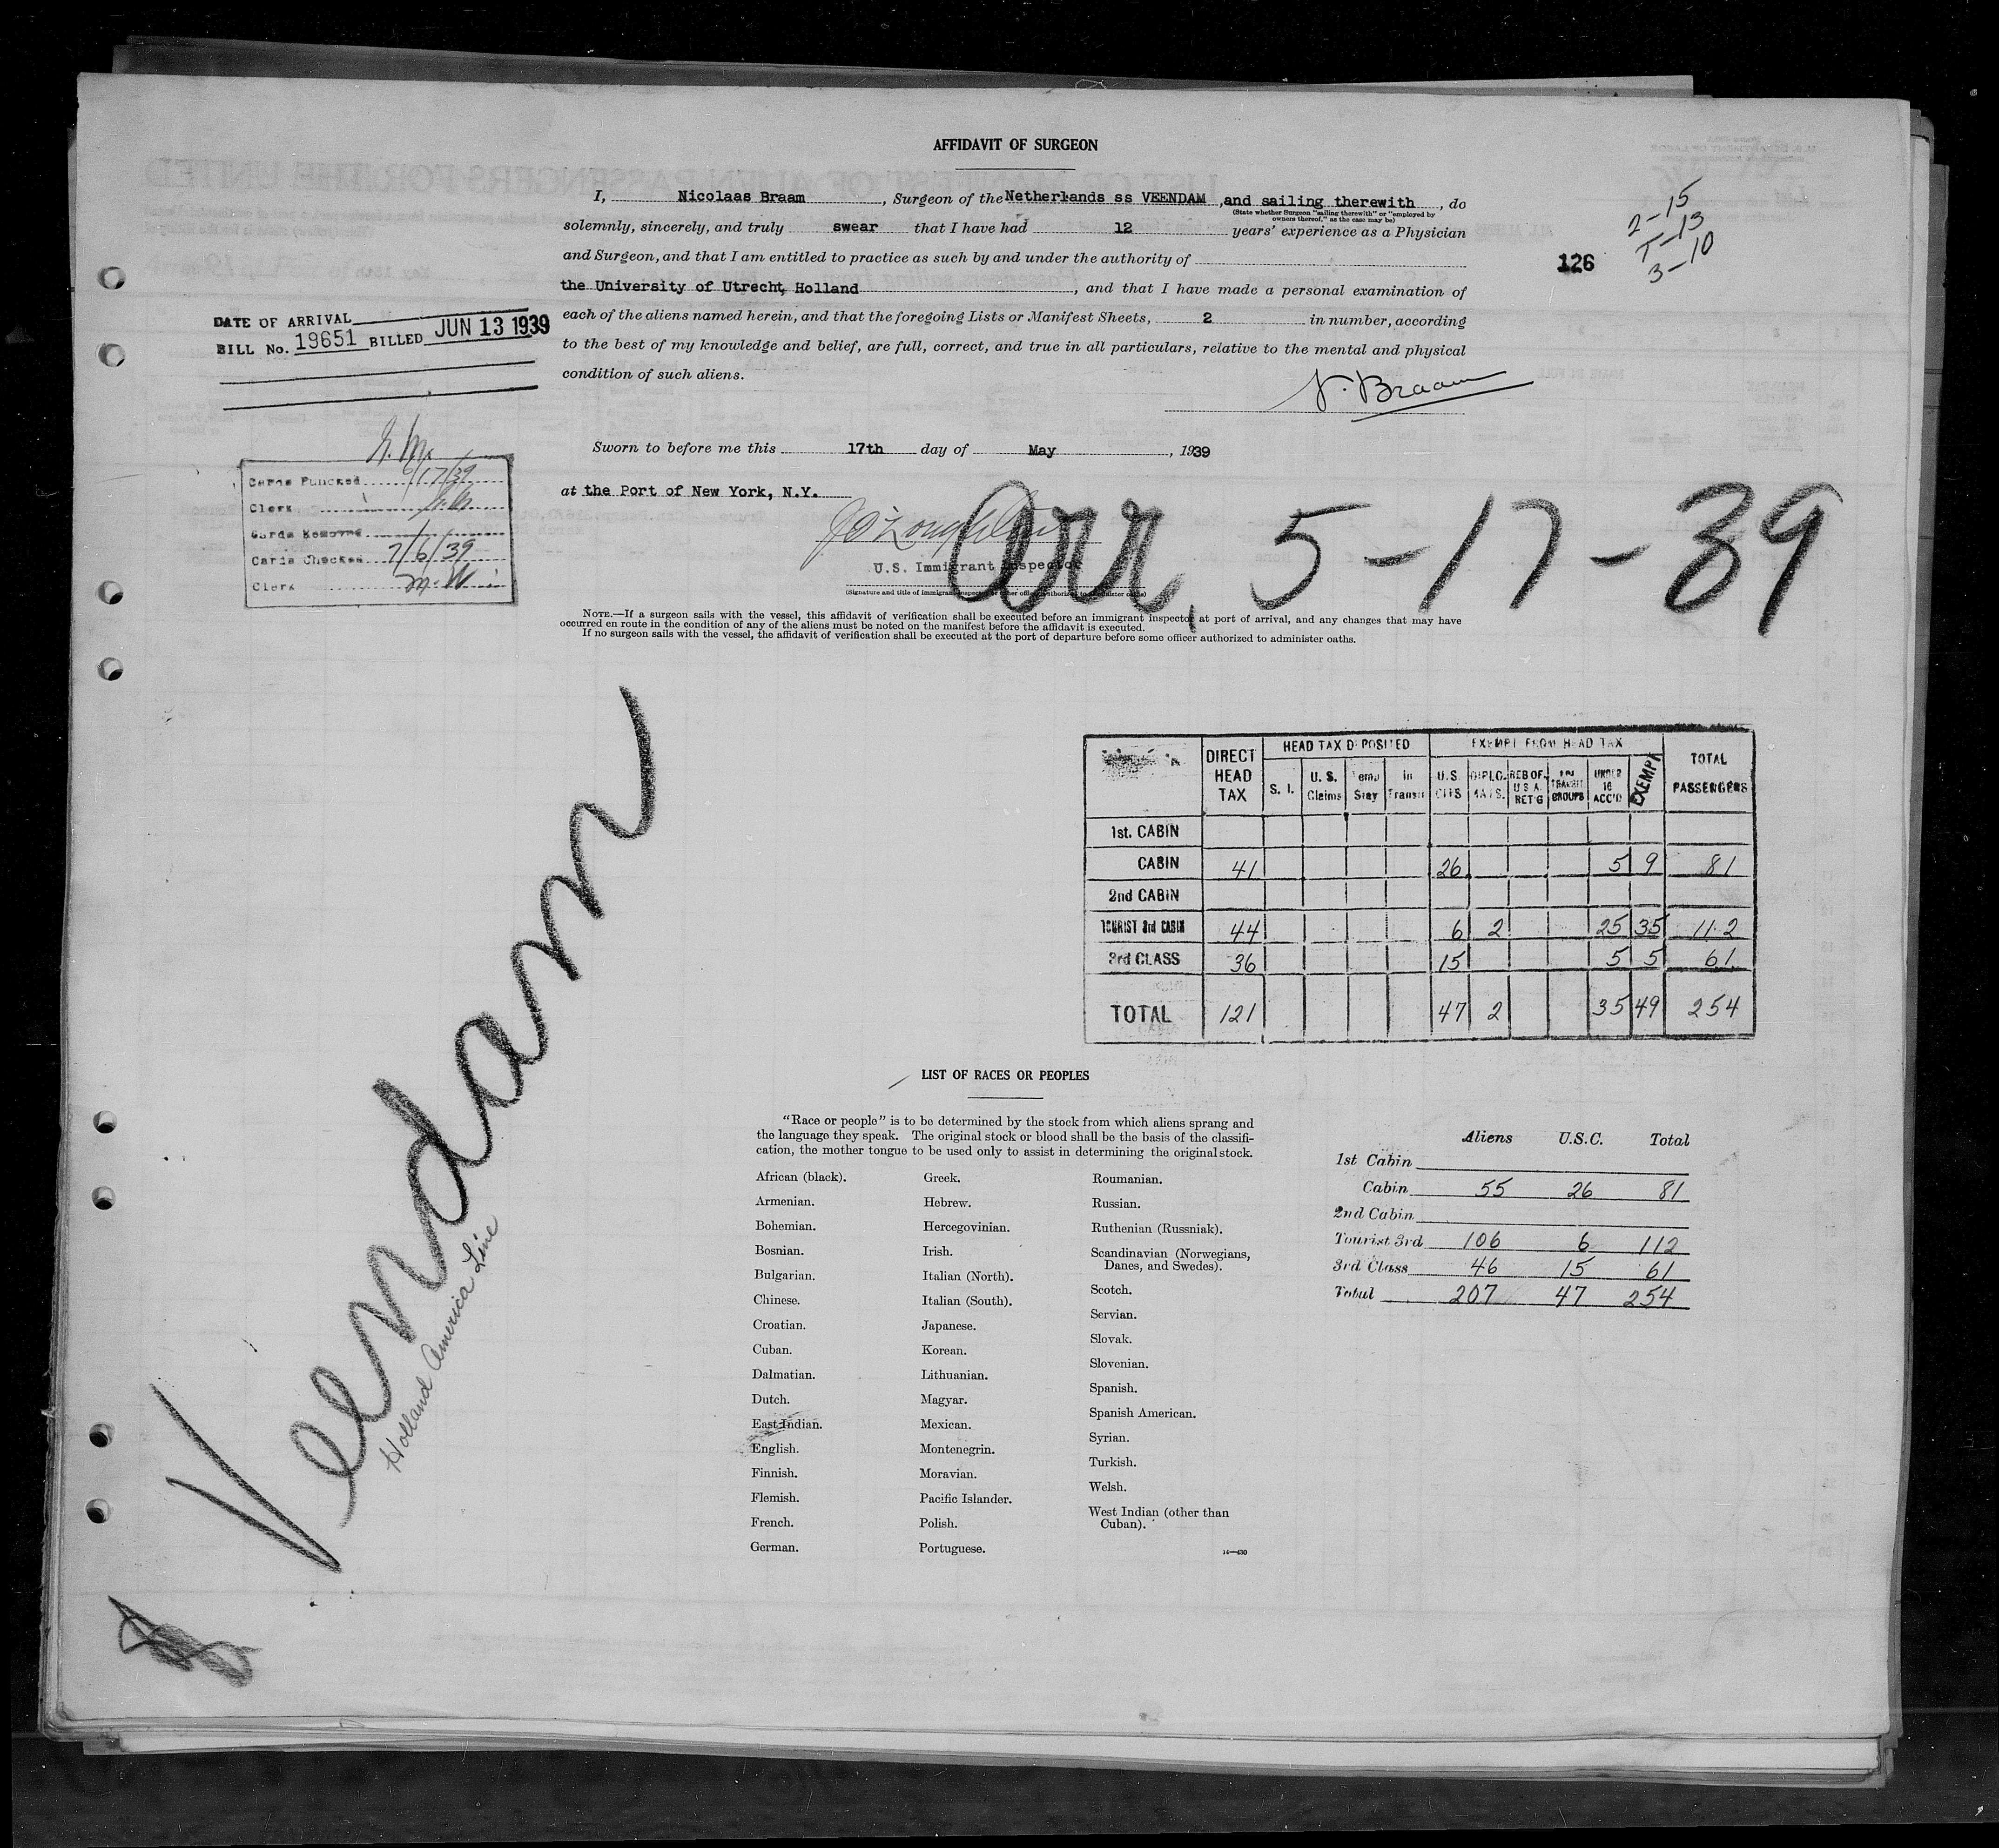 AFFIDAVIT OF SURGEON
I, Nicolaas Braam, Surgeon of the Netherlands ss VEENDAM, and sailing therewith, do
(State whether Surgeon "sailing therewith" or "employed by
owners thereof," as the case may be)
solemnly, sincerely, and truly swear that I have had 12 years' experience as a Physician
and Surgeon, and that I am entitled to practice as such by and under the authority of
the University of Utrecht, Holland, and that I have made a personal examination of
each of the aliens named herein, and that the foregoing Lists or Manifest Sheets, 2 in number, according
to the best of my knowledge and belief, are full, correct, and true in all particulars, relative to the mental and physical
condition of such aliens.
N. Braam
2-15
T-13
3-10
126
DATE OF ARRIVAL
BILL No. 19651 BILLED JUN 13 1939
Cards Punched 6/17/39
Clerk
Cards Removed
Cards Checked 7/6/39
Clerk M.W.
Sworn to before me this 17th day of May, 1939
at the Port of New York, N.Y.
U.S. Immigrant Inspector
Arr. 5-17-39
NOTE.—If a surgeon sails with the vessel, this affidavit of verification shall be executed before an immigrant inspector at port of arrival, and any changes that may have
occurred en route in the condition of any of the aliens must be noted on the manifest before the affidavit is executed.
If no surgeon sails with the vessel, the affidavit of verification shall be executed at the port of departure before some officer authorized to administer oaths.
Veendam
Holland America Line
DIRECT HEAD TAX HEAD TAX DEPOSITED EXEMPT FROM HEAD TAX TOTAL PASSENGERS
S. I. U. S. Claims Temp Stay In Transit U.S. CITS DIPLO-MATS. REB OF. U S A. RET'G TRANSIT GROUPS UNDER 16 ACC'D EXEMPT
1st. CABIN
CABIN 41 26 5 9 81
2nd CABIN
TOURIST 3rd CABIN 44 6 2 25 35 112
3rd CLASS 36 15 5 5 61
TOTAL 121 47 2 35 49 254
LIST OF RACES OR PEOPLES
"Race or people" is to be determined by the stock from which aliens sprang and
the language they speak. The original stock or blood shall be the basis of the classifi-
cation, the mother tongue to be used only to assist in determining the original stock.
African (black).
Armenian.
Bohemian.
Bosnian.
Bulgarian.
Chinese.
Croatian.
Cuban.
Dalmatian.
Dutch.
East Indian.
English.
Finnish.
Flemish.
French.
German.
Greek.
Hebrew.
Hercegovinian.
Irish.
Italian (North).
Italian (South).
Japanese.
Korean.
Lithuanian.
Magyar.
Mexican.
Montenegrin.
Moravian.
Pacific Islander.
Polish.
Portuguese.
Roumanian.
Russian.
Ruthenian (Russniak).
Scandinavian (Norwegians,
Danes, and Swedes).
Scotch.
Servian.
Slovak.
Slovenian.
Spanish.
Spanish American.
Syrian.
Turkish.
Welsh.
West Indian (other than
Cuban).
14—430
Aliens U.S.C. Total
1st Cabin
Cabin 55 26 81
2nd Cabin
Tourist 3rd 106 6 112
3rd Class 46 15 61
Total 207 47 254